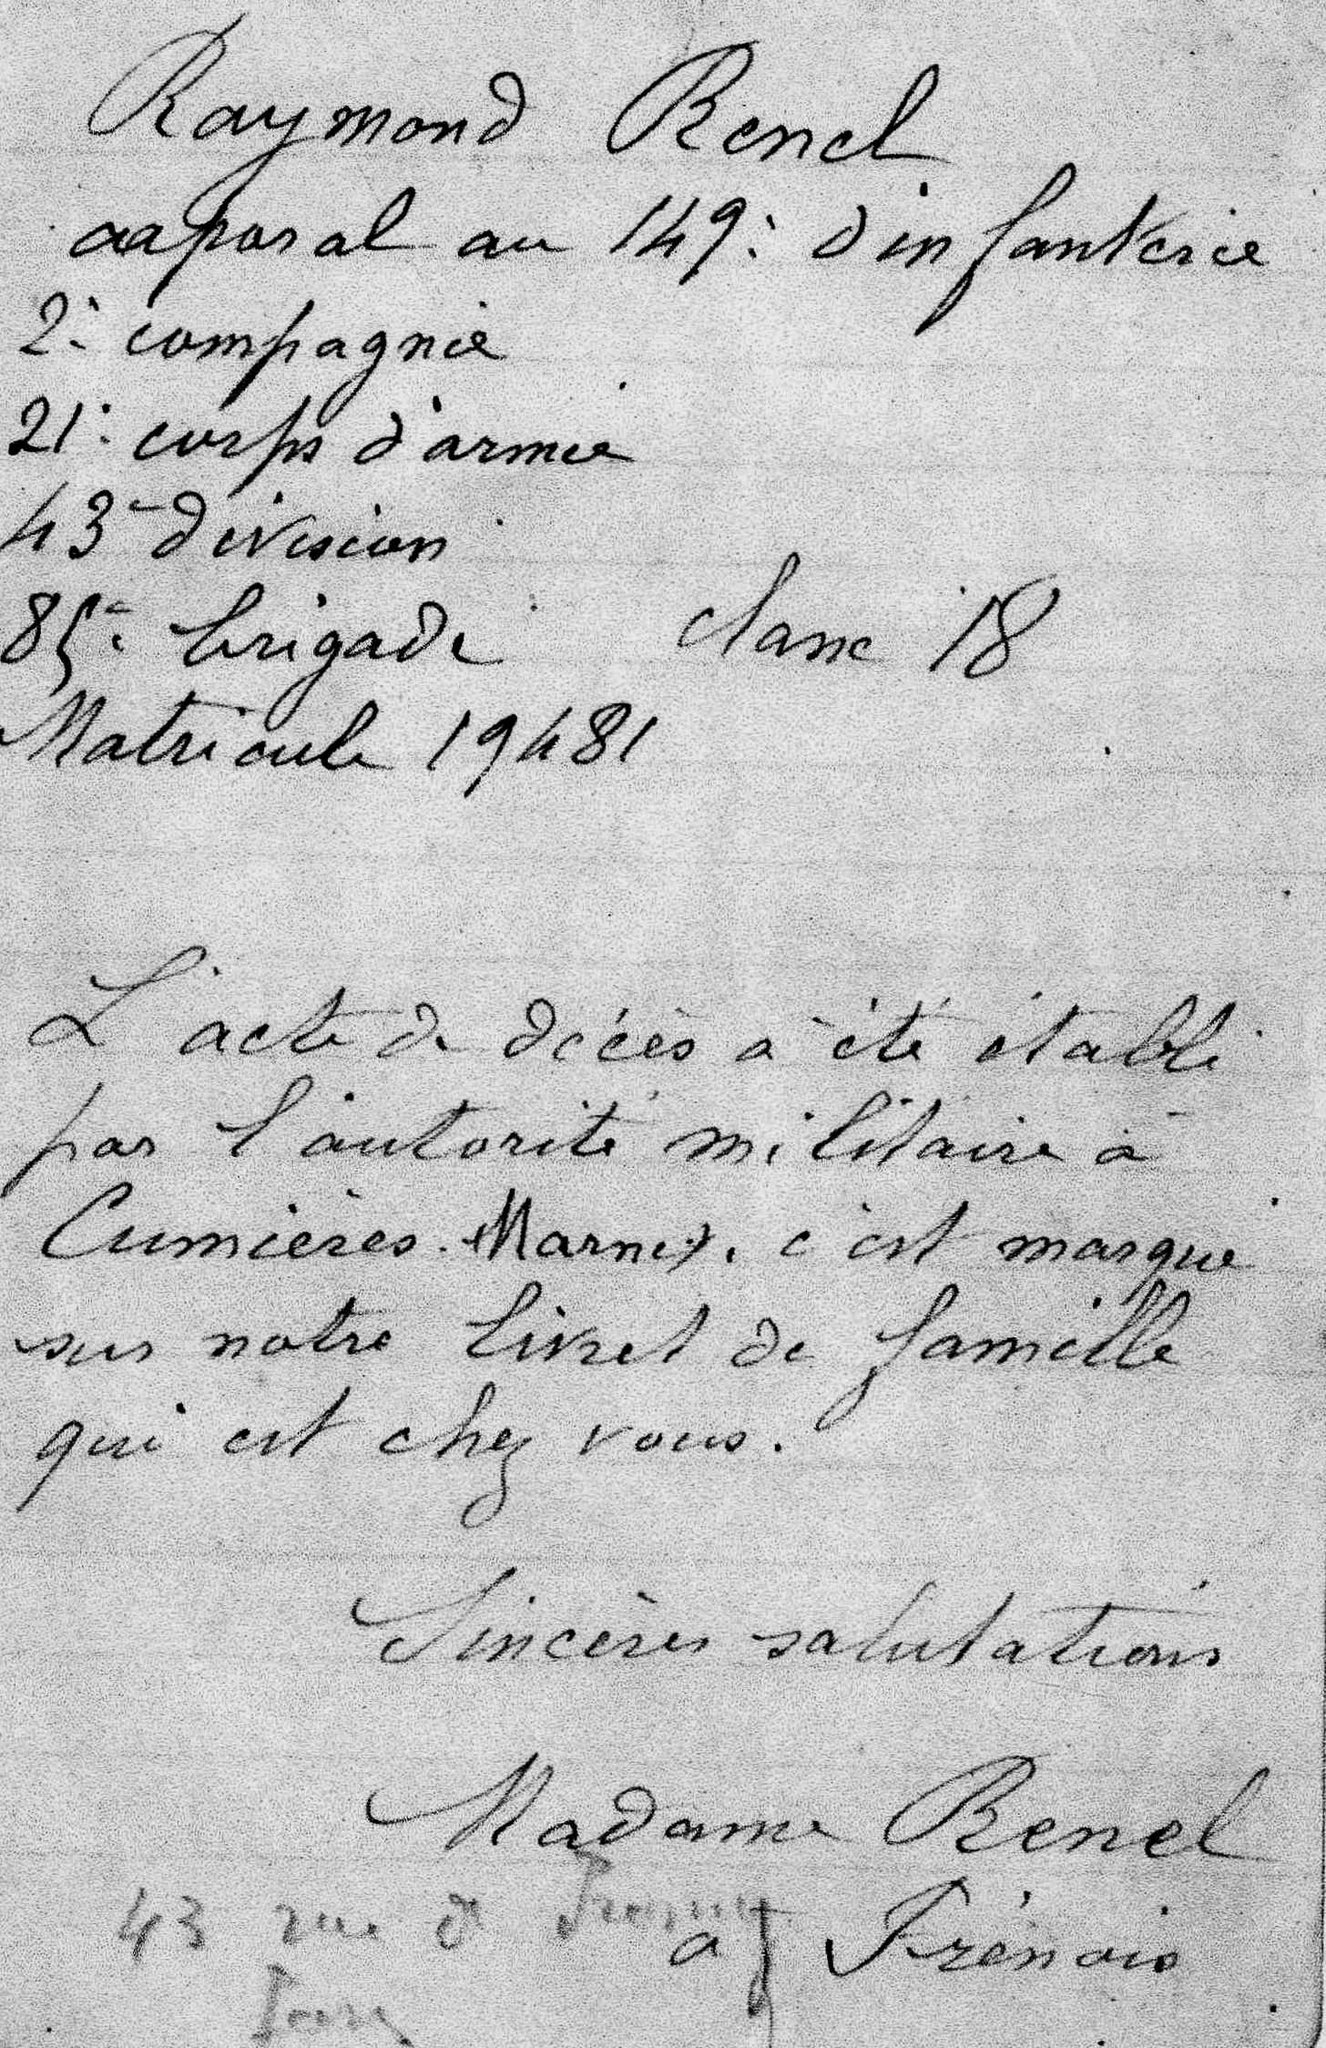 Raymond Renel
caporal au 149e d'infanterie
2e compagnie
21e corps d'armée
43e division
85e brigade classe 18
Matricule 19481
L'acte de décès à été établi
par l'autorité militaire à
Cumières (Marne). c'est marqué
sur notre livret de famille
qui est chez vous.
Sincères salutations
Madame Renel
à Frénois
43 rue de